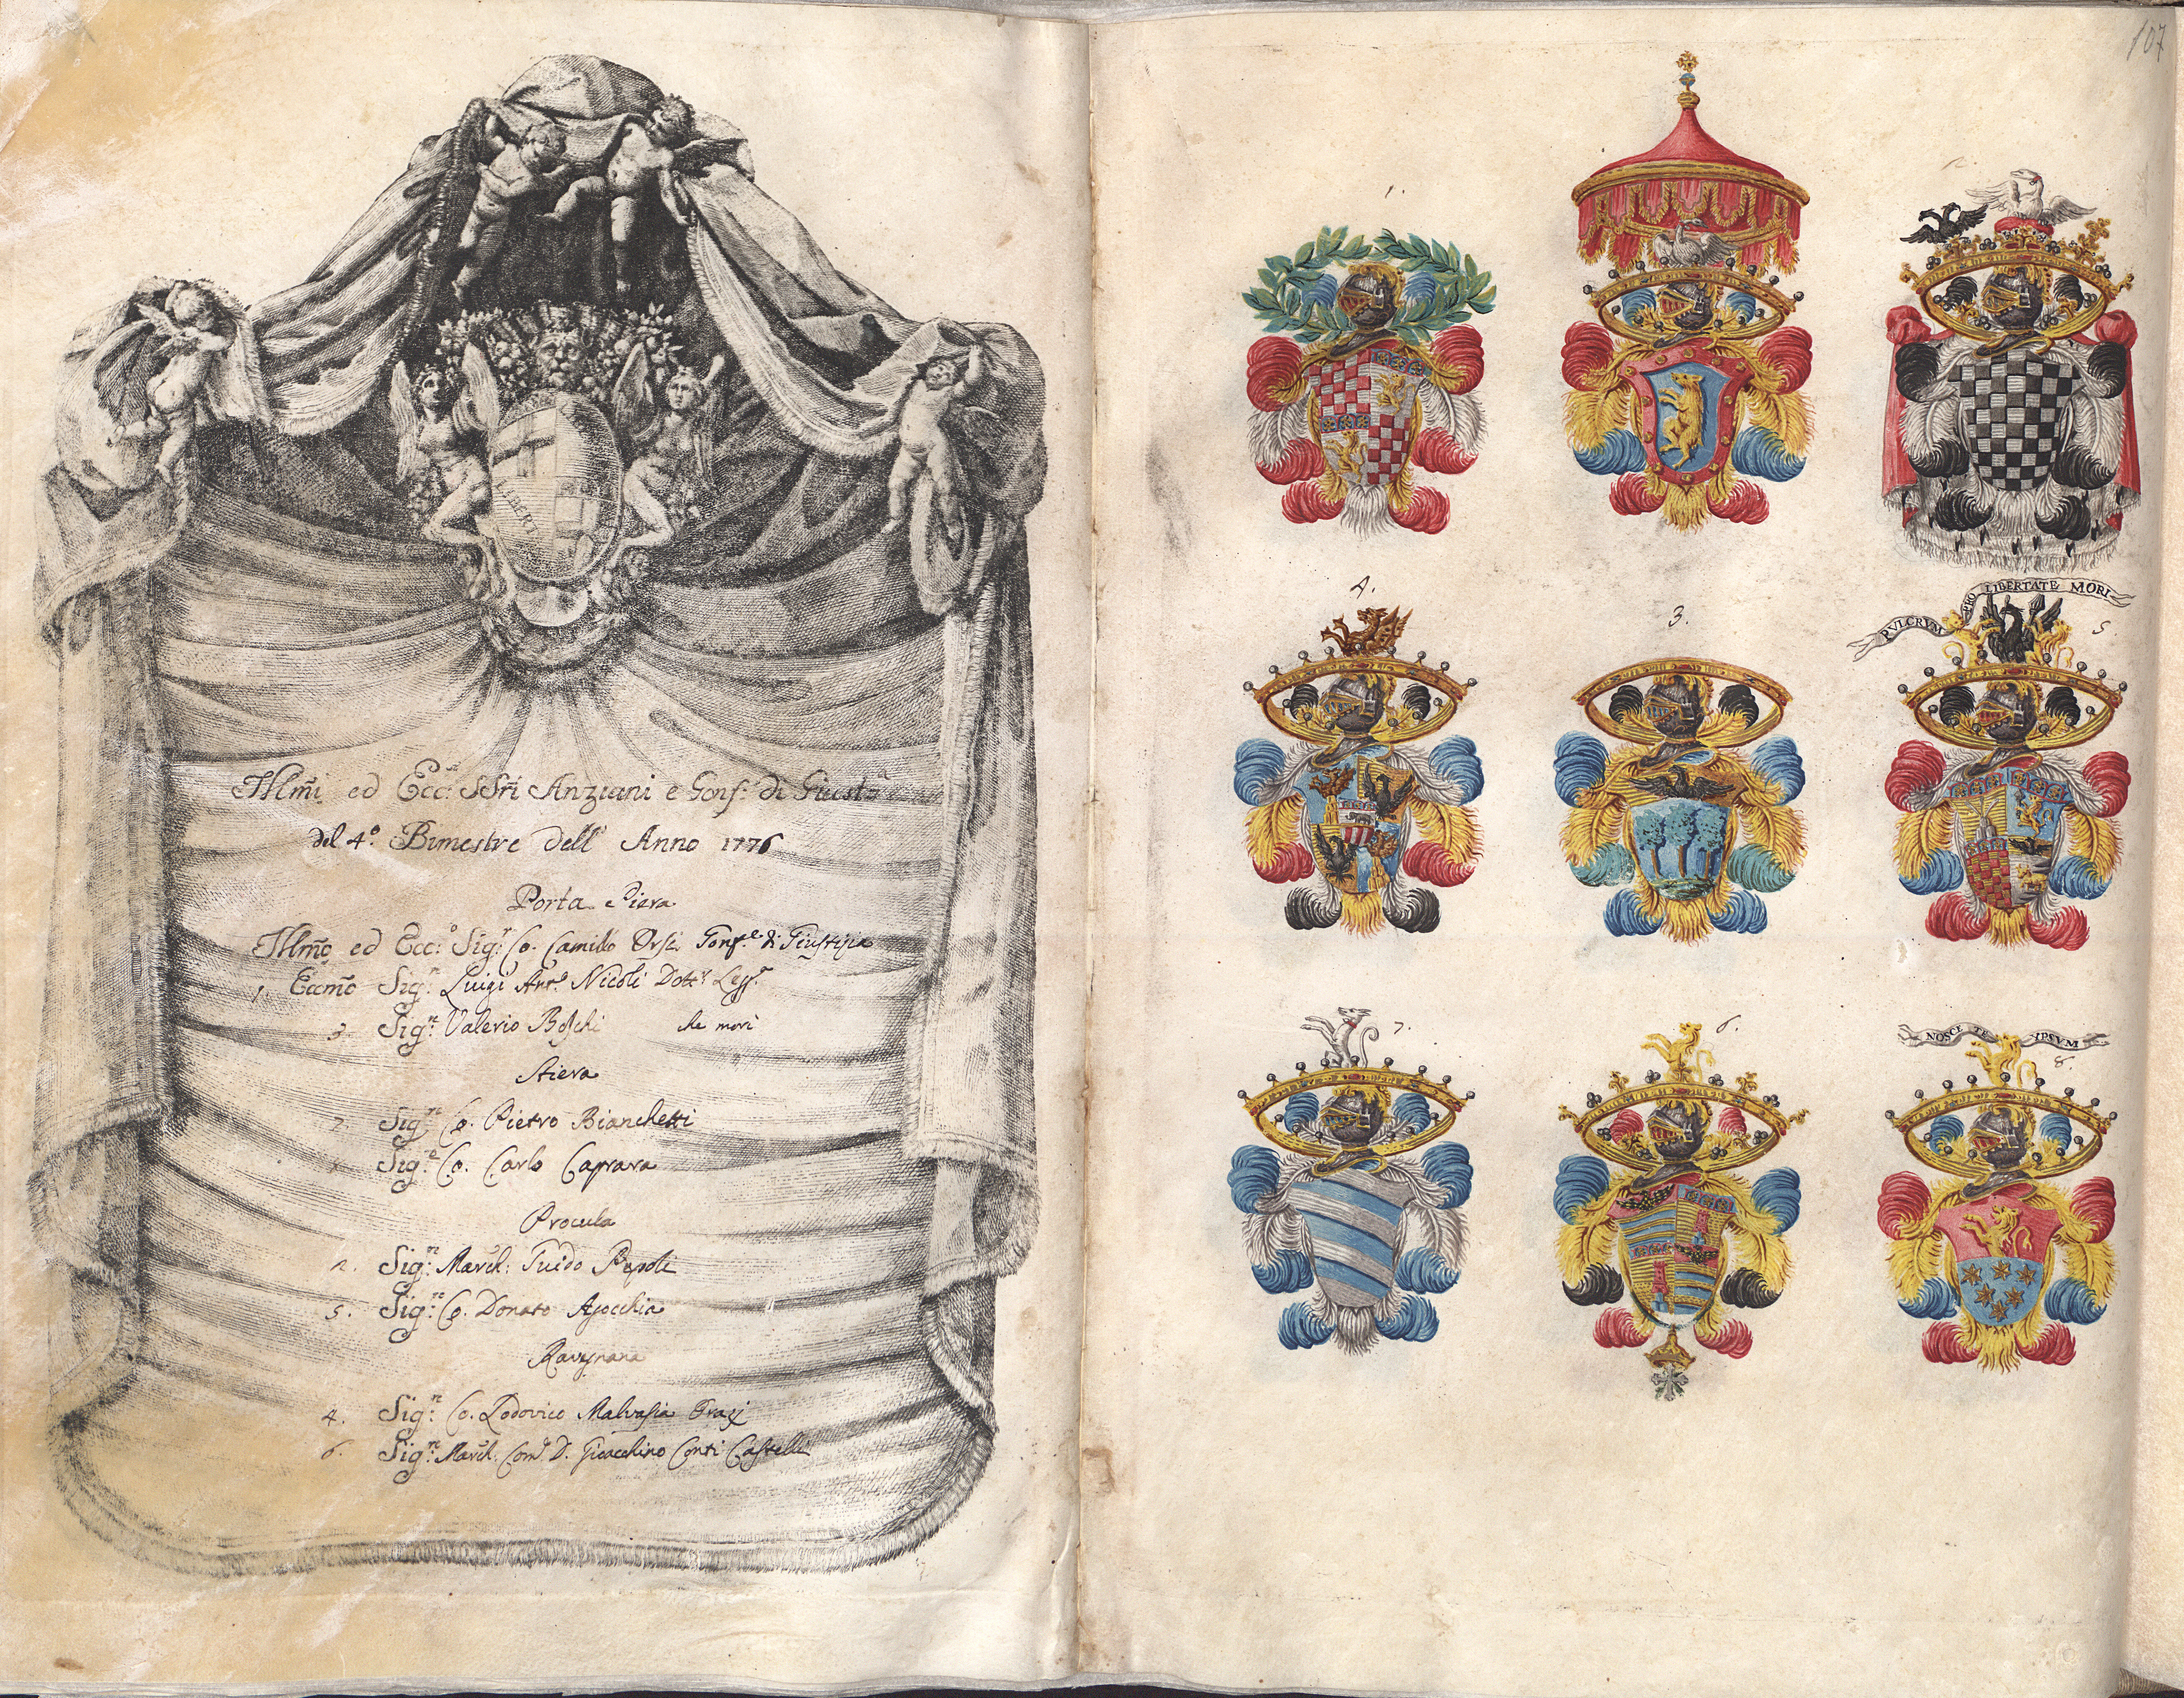 LIBERT
Illm̃i ed Ecc: SSri Anziani e Gonf: di Giusta
del 4.º Bimestre dell' Anno 1776
Porta Piera
Illm̃o ed Ecc:º Sig:r Co. Camillo Orsi Gonf:e di Giustizia
1. Eccm̃o Sig:r Luigi Ant.º Nicoli Dott.r
3. Sig:r Valerio Boschi che morì
Stiera
7. Sig:r Co. Pietro Bianchetti
Sig:r Co. Carlo Caprara
Procula
2. Sig:r March: Guido Pepoli
5. Sig:r Co. Donato Agocchia
Ravignana
4. Sig:r Co. Lodovico Malvasia Grazj
6. Sig:r March: D. Gioacchino Conti Castelli
107
1.
2
4.
3.
PVLCRVM PRO LIBERTATE MORI
5.
7.
6.
NOSCE TE YPSVM
8.